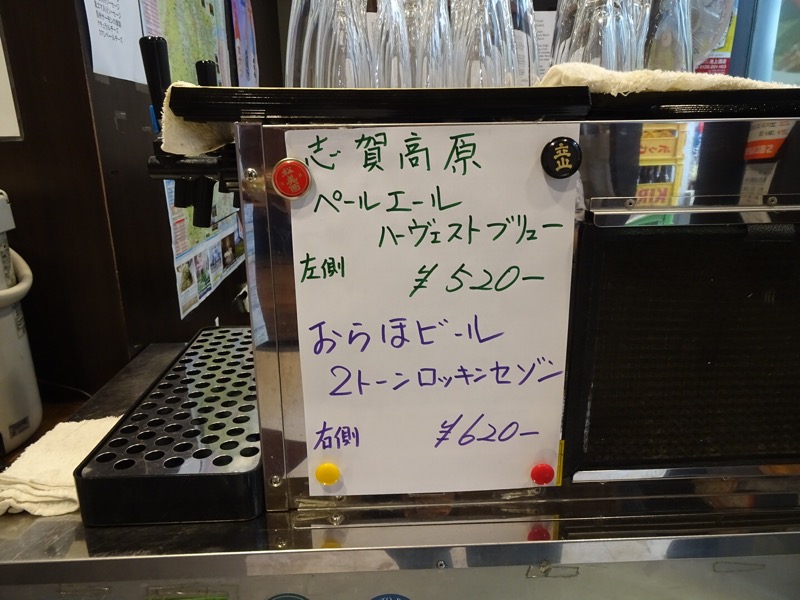 志賀高原
ペールエール
ハーヴェストブリュー
左側 ¥520-
おらほビール
2トーンロッキンセゾン
右側 ¥620-
立山